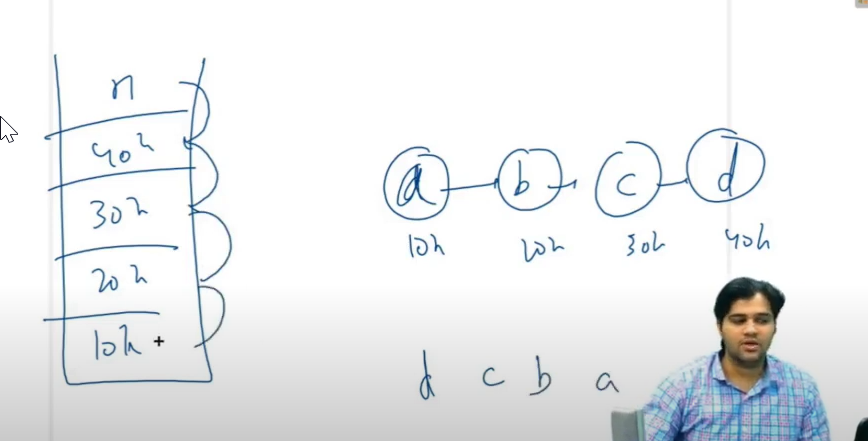 n
40h
30h
20h
10h
a b c d
10h 20h 30h 40h
d c b a